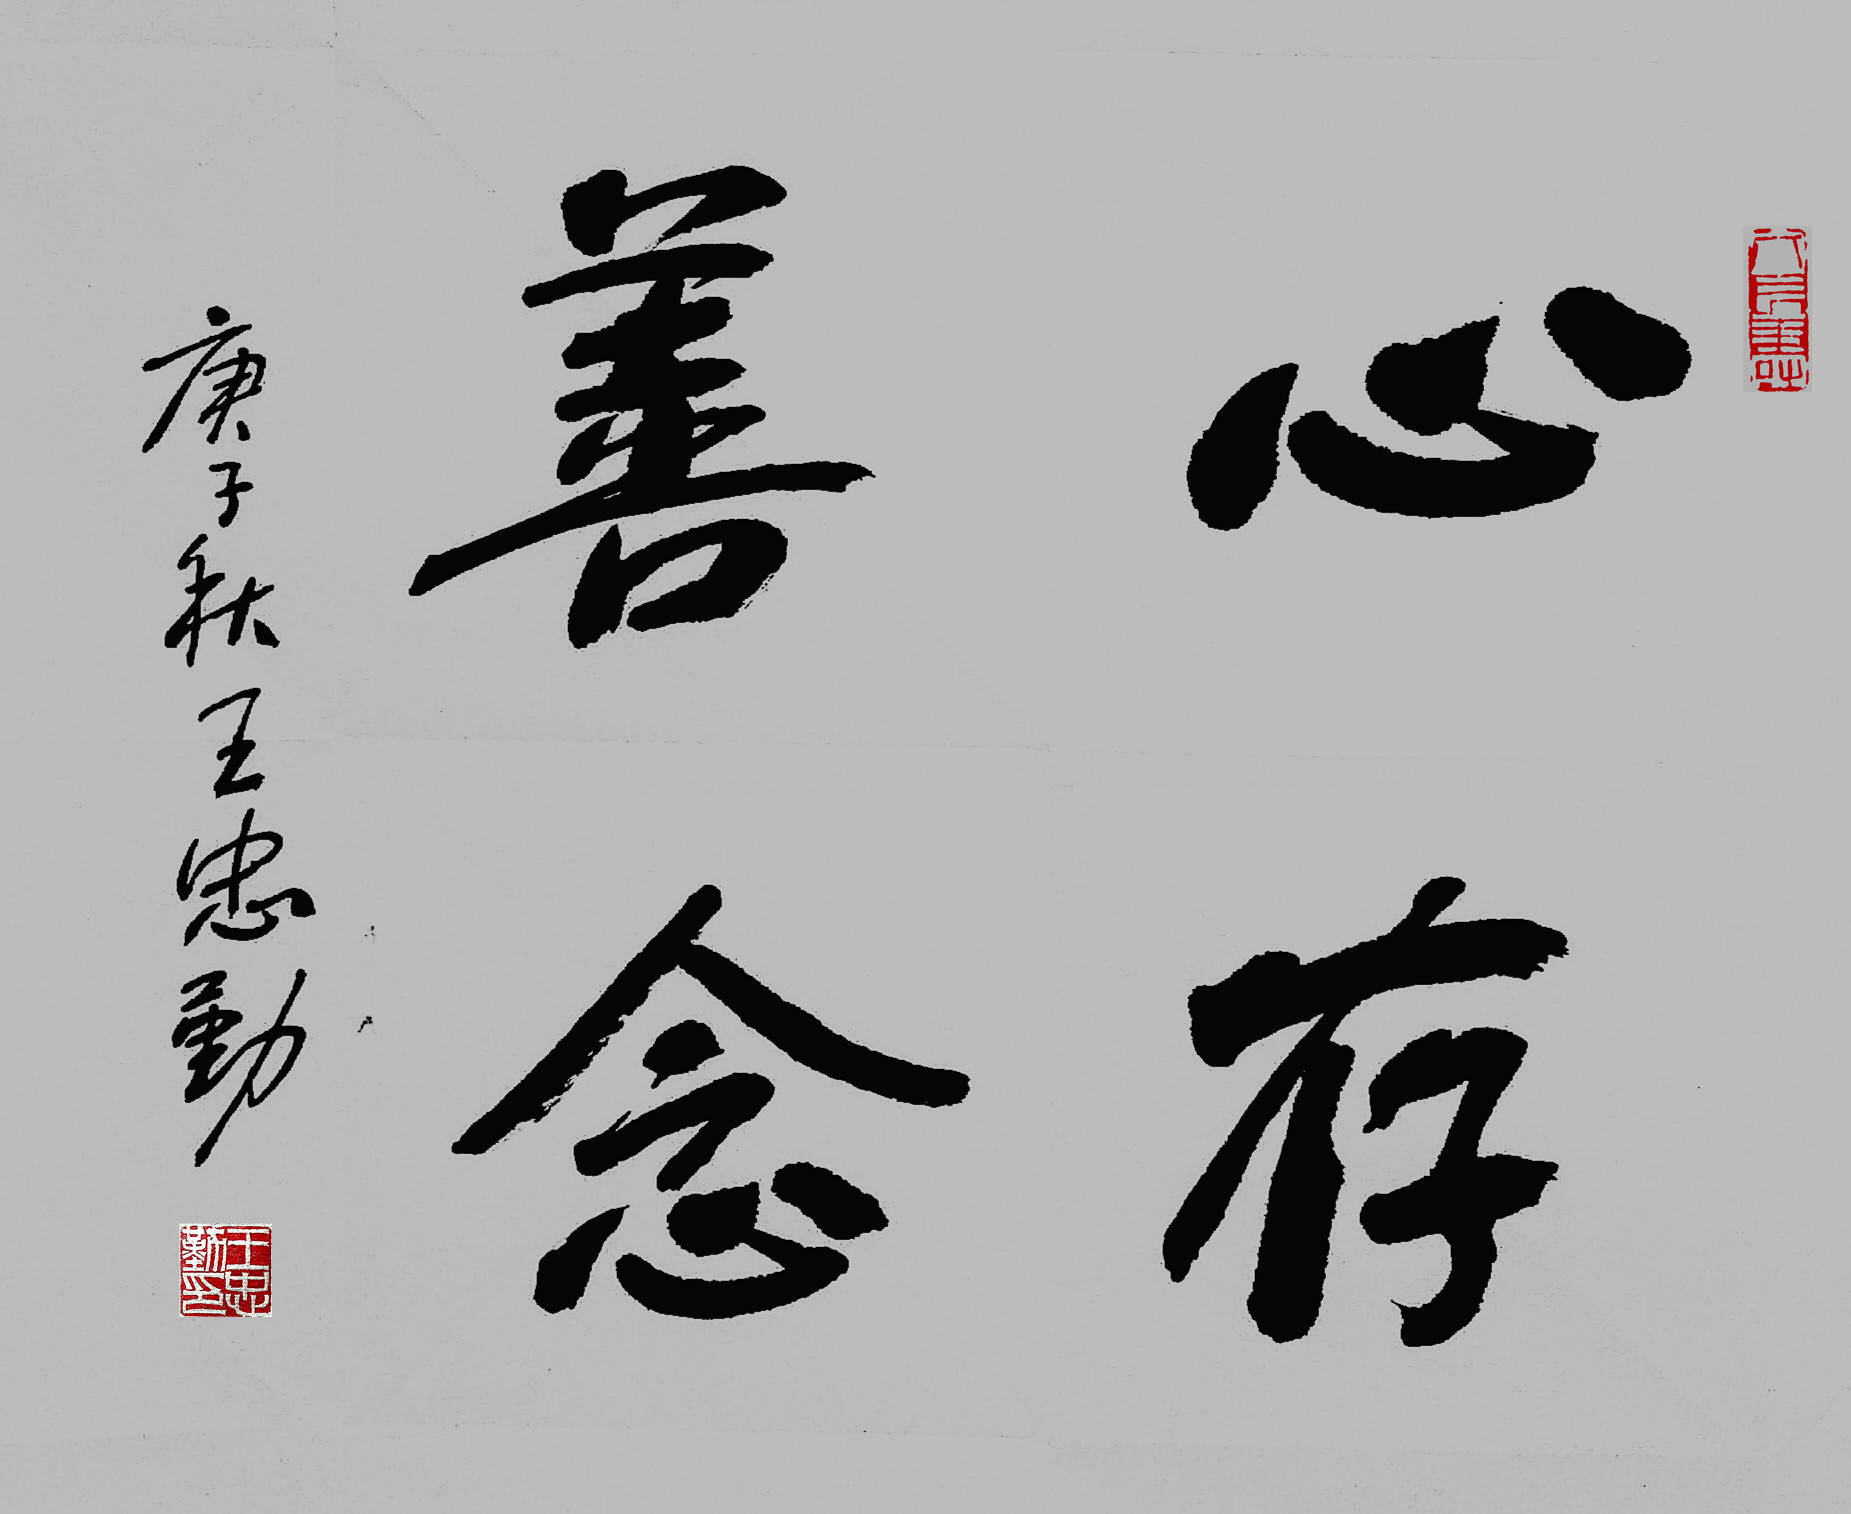 心存
善念
庚子秋王忠勤
王忠勤印